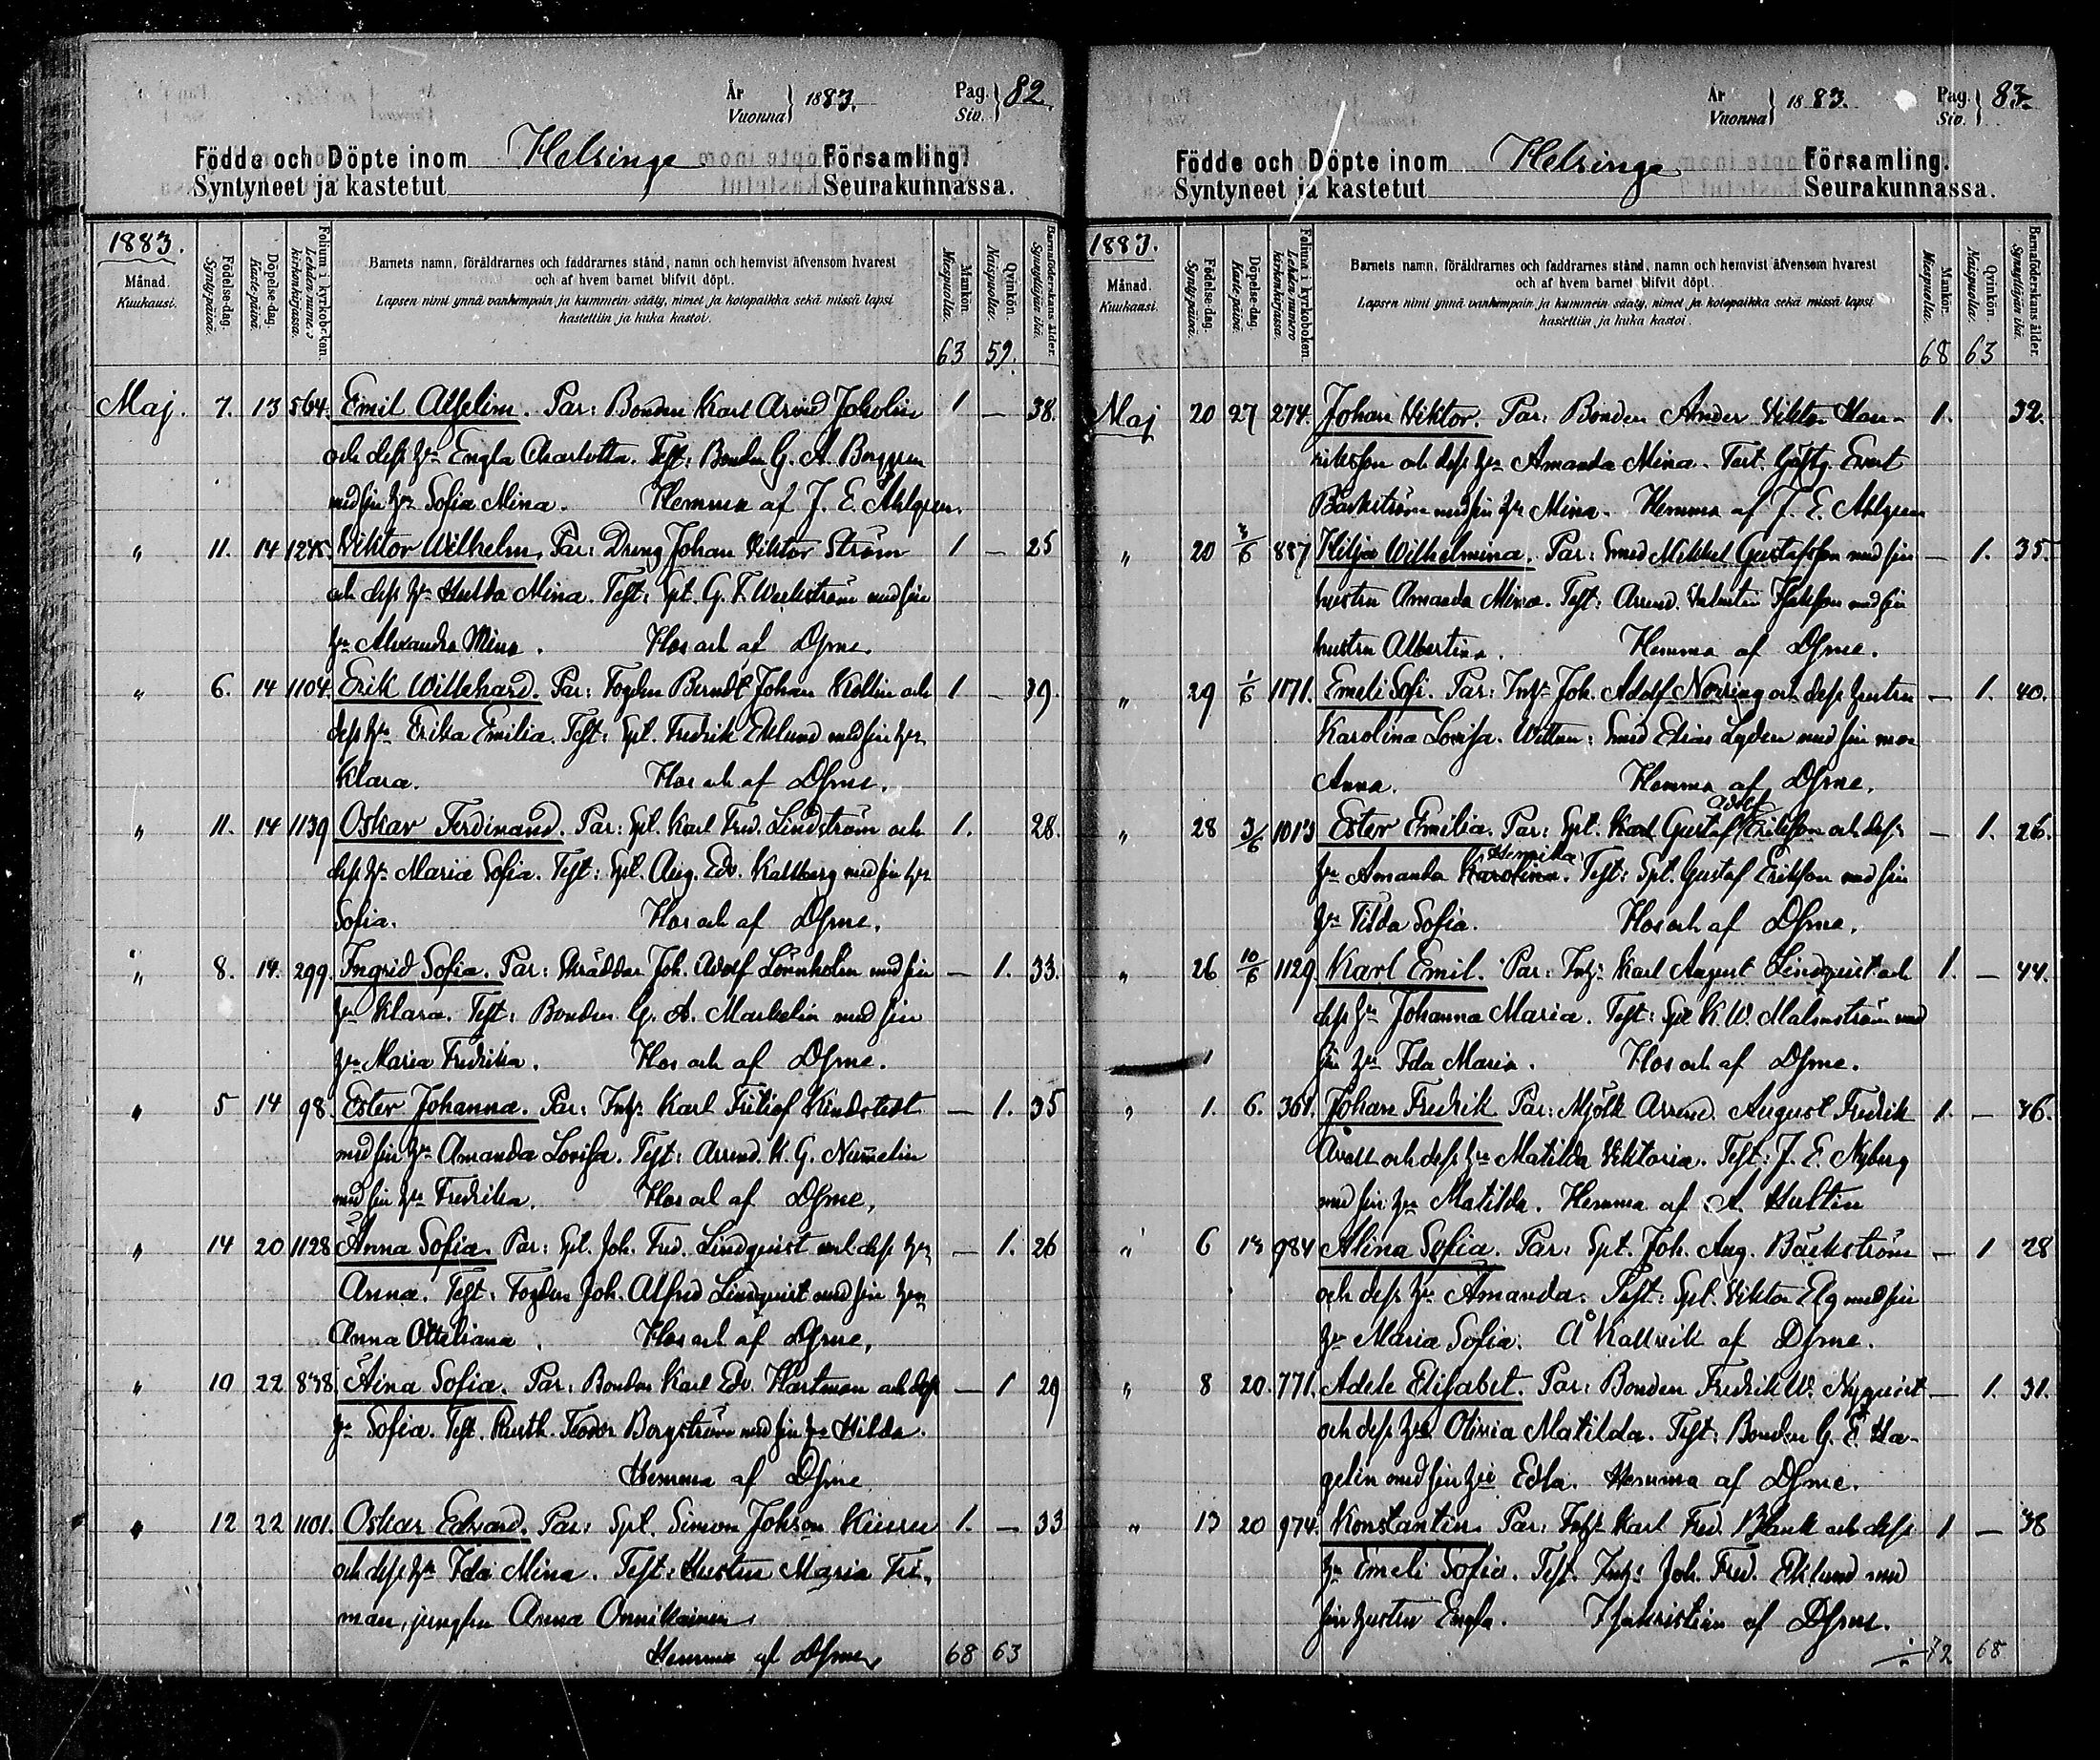 År
Vuonna } 1883.
Pag.
Siv. } 82.
Födde och Döpte inom Helsinge Församling.
Syntyneet ja kastetut Seurakunnassa.
1883.
Månad.
Kuukausi.
Födelse-dag.
Synty-päivä.
Döpelse-dag.
Kaste-päivä.
Folium i kyrkoboken.
Lehden numero kirkonkirjassa.
Barnets namn, föräldrarnes och faddrarnes stånd, namn och hemvist äfvensom hvarest
och af hvem barnet blifvit döpt.
Lapsen nimi ynnä vanhempain ja kummein sääty, nimet ja kotopaikka sekä missä lapsi
kastettiin ja kuka kastoi.
Mankön.
Miespuolia.
Qvinkön.
Naispuolia.
Barnaföderskans ålder.
Synnyttäjän ikä.
63 59.
Maj. 7. 13 564. Emil Alselim. Par: Bonden Karl Arvid Joholin 1 — 38.
och dess hu Engla Charlotta. Test: Bonden G. A. Berggren
med sin hu Sofia Mina. Hemma af J. E. Ahlgren.
" 11. 14 1245. Viktor Wilhelm. Par: Dreng Johan Viktor Ström 1 — 25
och dess hu Hulda Mina. Test: Spt. G. F. Weckström med sin
hu Alexandra Mina. Hos och af Dsme.
" 6. 14 1104. Erik Willehard. Par: Fogden Berndt Johan Kollin och 1 — 39.
dess hu Erika Emilia. Test: Spt. Fredrik Eklund med sin hu
Klara. Hos och af Dsme.
" 11. 14 1139 Oskar Ferdinand. Par: Spt. Karl Fred. Lindström och 1. 28.
dess hu Maria Sofia. Test: Spt. Aug. Edv. Kallberg med sin hu
Sofia. Hos och af Dsme.
" 8. 14. 299. Ingrid Sofia. Par: Skräddar Joh. Adolf Lönnholm med sin — 1. 33.
hu Klara. Test: Bonden G. A. Markelin med sin
hu Maria Fredrika. Hos och af Dsme.
" 5 14 98. Ester Johanna. Par: Inhs Karl Fritiof Kindstedt — 1. 35
med sin hu Amanda Lovisa. Test: Arrend. K. G. Numelin
med sin hu Fredrika. Hos och af Dsme.
" 14 20 1128 Anna Sofia. Par: Spt. Joh. Fred. Lindqvist och dess hu — 1. 26
Anna. Test: Fogden Joh. Alfred Lindqvist med sin hu
Anna Otteliana. Hos och af Dsme.
" 10 22 838. Aina Sofia. Par: Bonden Karl Edv. Hartman och dess — 1 29
hu Sofia. Test. Rusth. Teodor Bergström med sin hu Hilda.
Hemma af Dsme
" 12 22 1101. Oskar Edvard. Par: Spt. Simon Johsson 1. — 33
och dess hu Ida Mina. Test: Hustru Maria Fri-
man, jungfru Anna Onnikainen
Hemma af Dsme 68 63
År
Vuonna } 1883.
Pag.
Siv. } 83.
Födde och Döpte inom Helsinge Församling.
Syntyneet ja kastetut Seurakunnassa.
1883.
Månad.
Kuukausi.
Födelse-dag.
Synty-päivä.
Döpelse-dag.
Kaste-päivä.
Folium i kyrkoboken.
Lehden numero kirkonkirjassa.
Barnets namn, föräldrarnes och faddrarnes stånd, namn och hemvist äfvensom hvarest
och af hvem barnet blifvit döpt.
Lapsen nimi ynnä vanhempain ja kummein sääty, nimet ja kotopaikka sekä missä lapsi
kastettiin ja kuka kastoi.
Mankön.
Miespuolia.
Qvinkön.
Naispuolia.
Barnaföderskans ålder.
Synnyttäjän ikä.
68 63
Maj 20 27 274. Johan Viktor. Par: Bonden Ander Viktor Hen- 1. 32.
riksson och dess hu Amanda Mina. Test. Evert
Bäckström med sin hu Mina. Hemma af J. E. Ahlgren
" 20 3/6 887 Hilja Wilhelmina. Par: Smed Mikkel Gustafsson med sin — 1. 35.
hustru Amanda Mina. Test: Arrend. Valentin Isaksson med sin
hustru Albertina. Hemma af Dsme.
" 29 1/6 1171. Emeli Sofi. Par: Inhs Joh. Adolf Norring och dess hustru — 1. 40.
Karolina Lovisa. Wittne: Smed Elias Lyden med sin mor
Anna. Hemma af Dsme.
Adolf
" 28 3/6 1013 Ester Emilia. Par: Spt. Karl Gustaf Eriksson och dess — 1. 26.
Henrika
hu Amanda Karolina. Test: Spt. Gustaf Eriksson med sin
hu Tilda Sofia. Hos och af Dsme.
" 26 10/6 1129 Karl Emil. Par: Inhs Karl August Lindqvist och 1. — 44.
dess hu Johanna Maria. Test: Spt K. W. Malmström med
sin hu Ida Maria. Hos och af Dsme.
" 1. 6. 361. Johan Fredrik Par: Mjölk Arrend. August Fredrik 1. — 36.
och dess hu Matilda Viktoria. Test: J. E. Nyberg
med sin hu Matilda. Hemma af A. Hultin
" 6 13 984 Alina Sofia. Par: Spt. Joh. Aug. Bäckström — 1 28
och dess hu Amanda. Test: Spt. Viktor Elg med sin
hu Maria Sofia. Å Kallvik af Dsme.
" 8 20. 771. Adele Elisabet. Par: Bonden Fredrik W. Nyqvist — 1. 31.
och dess hu Olivia Matilda. Test: Bonden G. E. Ha-
gelin med sin hu Edla. Hemma af Dsme.
" 13 20 974. Konstantin. Par: Inhs Karl Fred. Blank och dess 1 — 38
hu Emeli Sofia. Test. Inhs Joh. Fred. Eklund med
sin hustru Engla. I sakristian af Dsme.
72 68